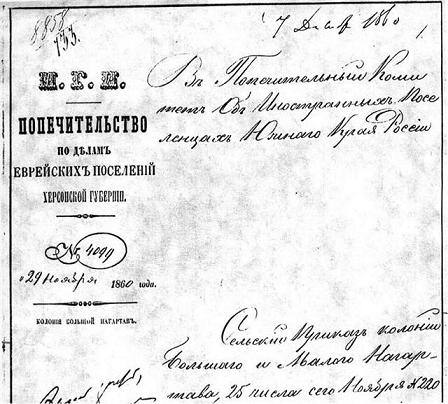 8858
133.
7 Декабр 1860
М. Г. И.
ПОПЕЧИТЕЛЬСТВО
ПО ДѢЛАМЪ
ЕВРЕЙСКИХЪ ПОСЕЛЕНІЙ
ХЕРСОНСКОЙ ГУБЕРНІИ.
№ 4099
"29 Ноября 1860 года.
КОЛОНІЯ БОЛЬШОЙ НАГАРТАВЪ.
Въ Попечительный Коми
тетъ Объ Иностранныхъ Посе
ленцахъ Южнаго Края Россіи
Сельскій Приказъ колоній
Большаго и Малаго Нагар-
тава, 25 числа сего Ноября № 220